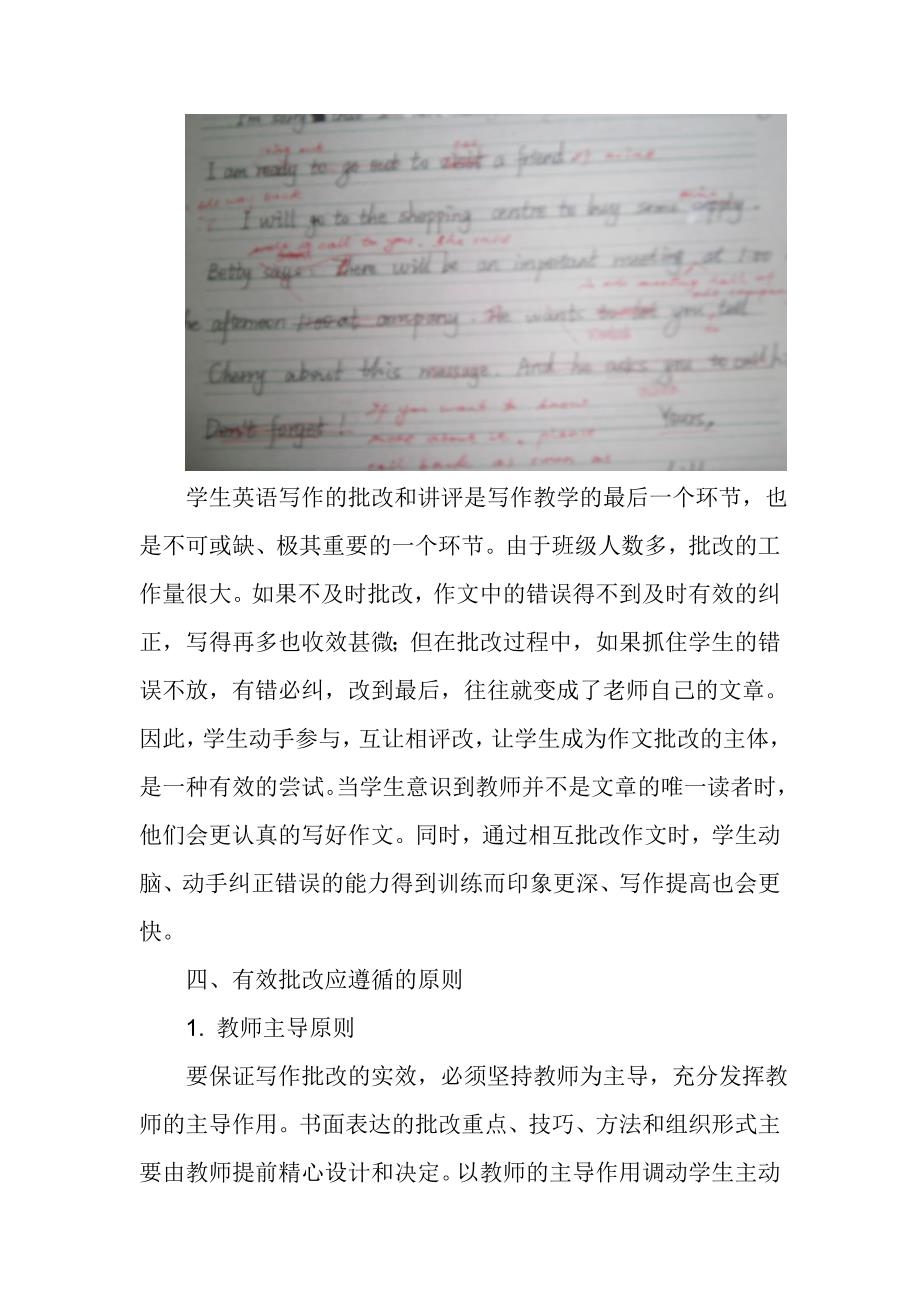 I'm sorry that I
going out see
I am ready to go out to visit a friend of mine
way back
I will go to the shopping centre to buy some apply.
make a call to you. She said
Betty says: there will be an important meeting at 1:00
he afternoon 1:00 at company. He wants to let you tell
Cherry about this message. And he asks you to call h
Don't forget! If you want to know Yours,
more about it, please
call back as soon as
学生英语写作的批改和讲评是写作教学的最后一个环节，也
是不可或缺、极其重要的一个环节。由于班级人数多，批改的工
作量很大。如果不及时批改，作文中的错误得不到及时有效的纠
正，写得再多也收效甚微；但在批改过程中，如果抓住学生的错
误不放，有错必纠，改到最后，往往就变成了老师自己的文章。
因此，学生动手参与，互让相评改，让学生成为作文批改的主体，
是一种有效的尝试。当学生意识到教师并不是文章的唯一读者时，
他们会更认真的写好作文。同时，通过相互批改作文时，学生动
脑、动手纠正错误的能力得到训练而印象更深、写作提高也会更
快。
四、有效批改应遵循的原则
1. 教师主导原则
要保证写作批改的实效，必须坚持教师为主导，充分发挥教
师的主导作用。书面表达的批改重点、技巧、方法和组织形式主
要由教师提前精心设计和决定。以教师的主导作用调动学生主动